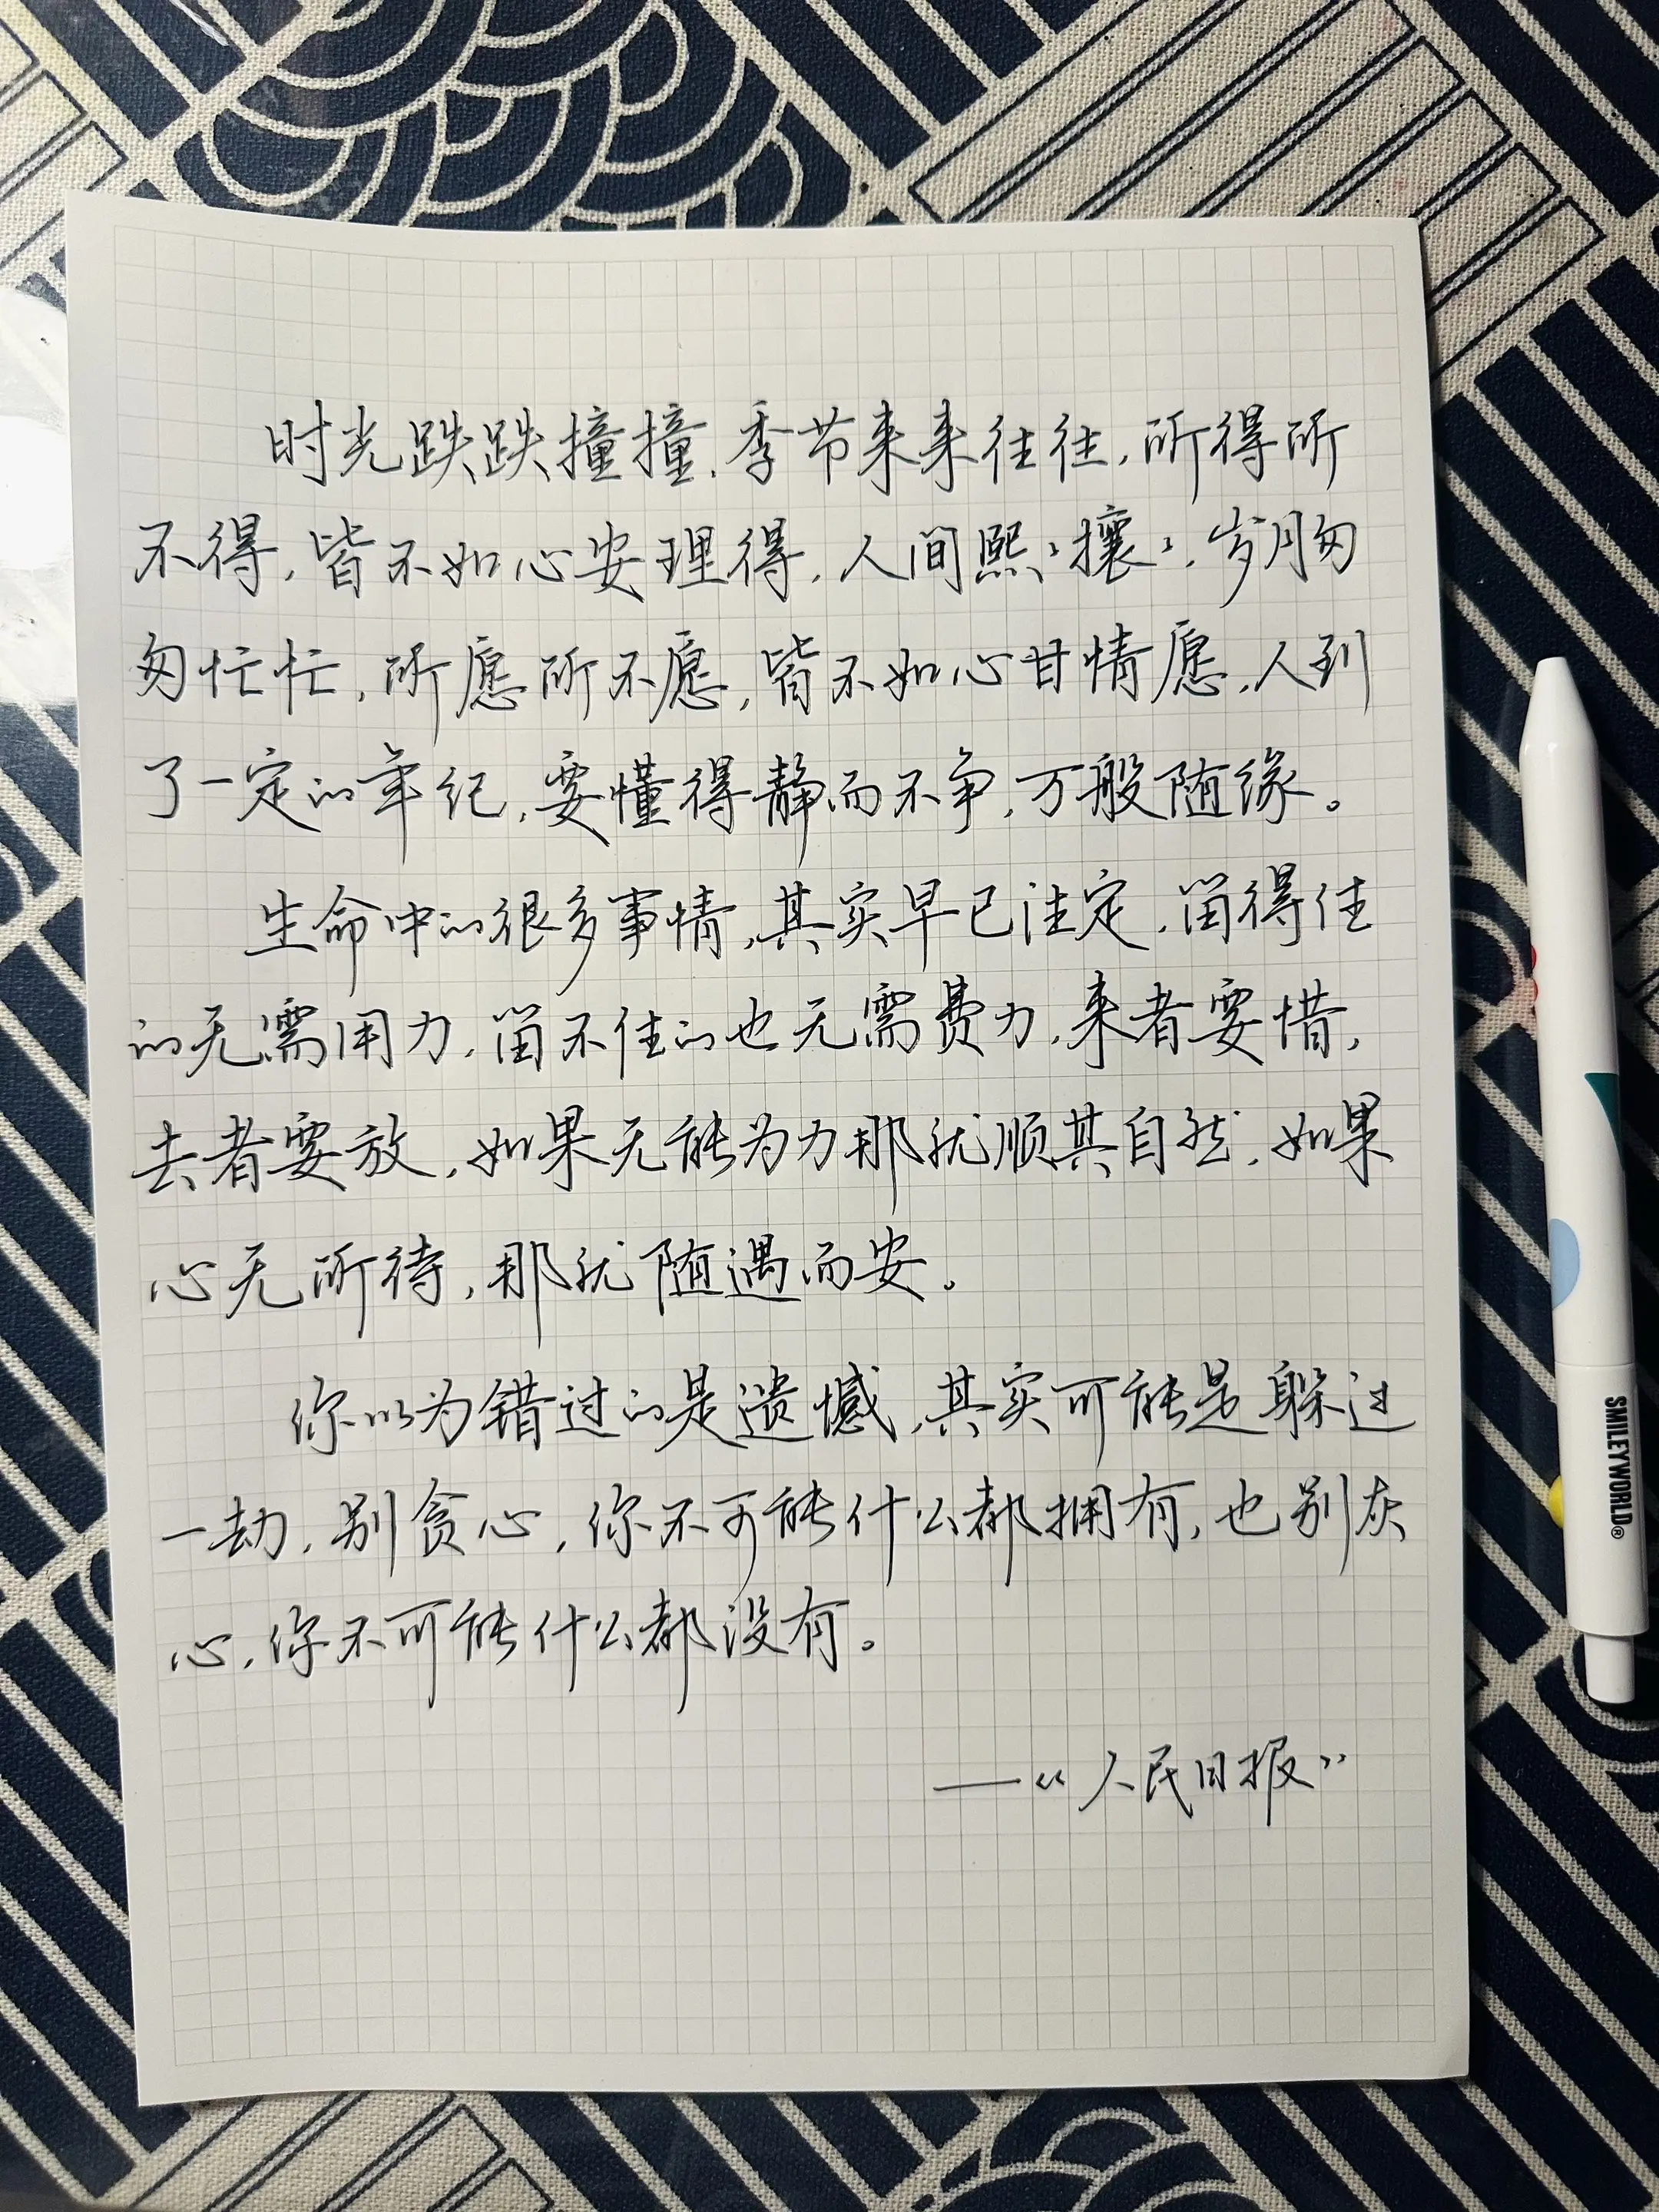 时光跌跌撞撞,季节来来往往,所得所
不得,皆不如心安理得,人间熙々攘々,岁月匆
匆忙忙,所愿所不愿,皆不如心甘情愿,人到
了一定的年纪,要懂得静而不争,万般随缘。
生命中的很多事情,其实早已注定,留得住
的无需用力,留不住的也无需费力,来者要惜,
去者要放,如果无能为力那就顺其自然,如果
心无所待,那就随遇而安。
你以为错过的是遗憾,其实可能是躲过
一劫,别贪心,你不可能什么都拥有,也别灰
心,你不可能什么都没有。
——“人民日报”
SMILEYWORLD®